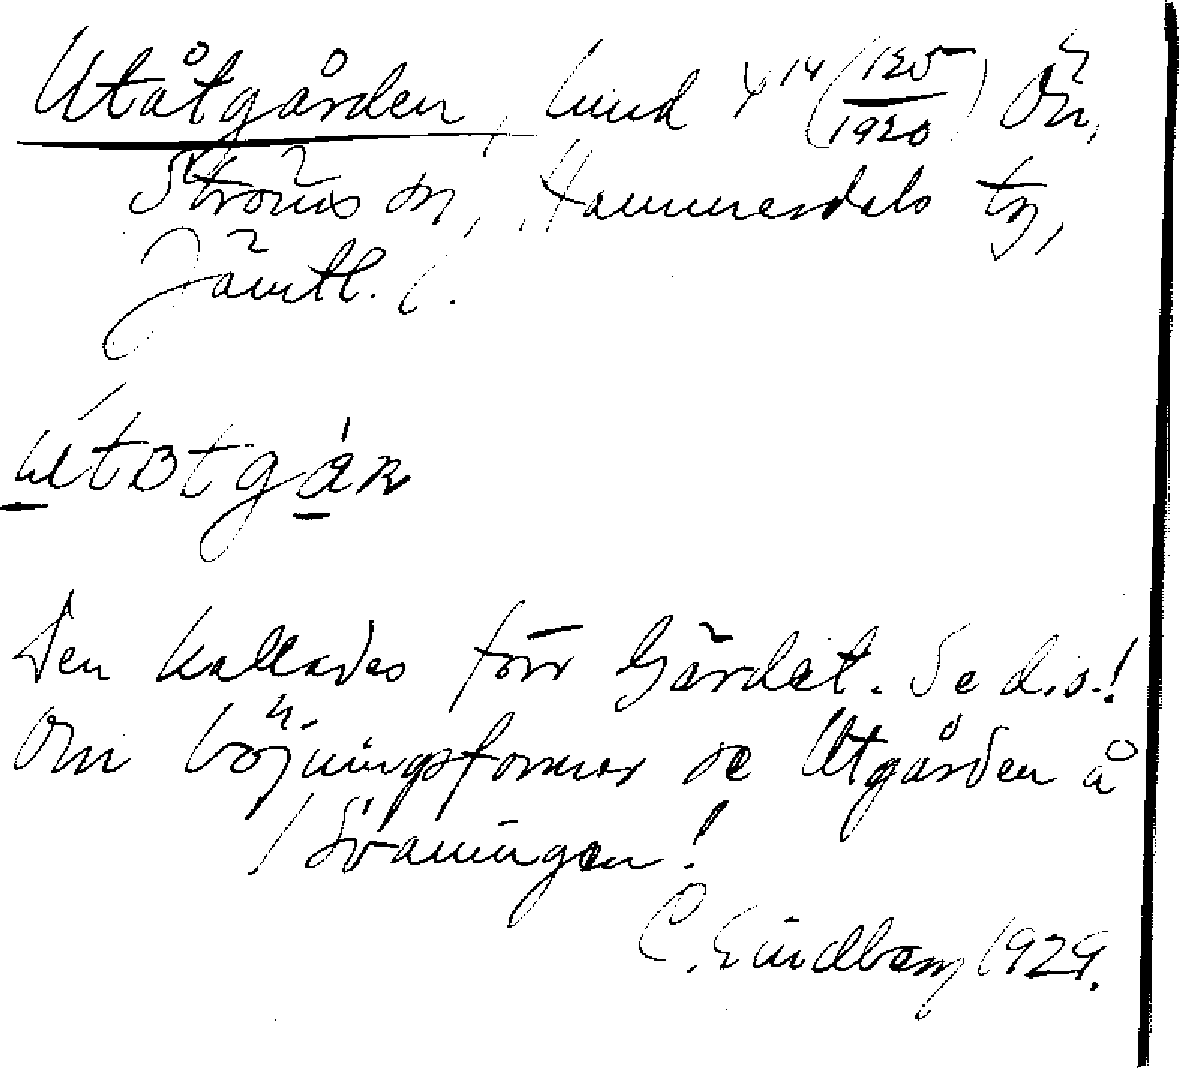 Utåtgården, lund 4¹⁴ (125/1920) Ön,
Ströms sn, Hammerdals tg,
Jämtl. l.
utɒtgáɳ
Den kallades förr Gärdet. Se d.o.!
Om böjningsformer se Utgården å
/ Svaningen!
C. Lindberg 1929.